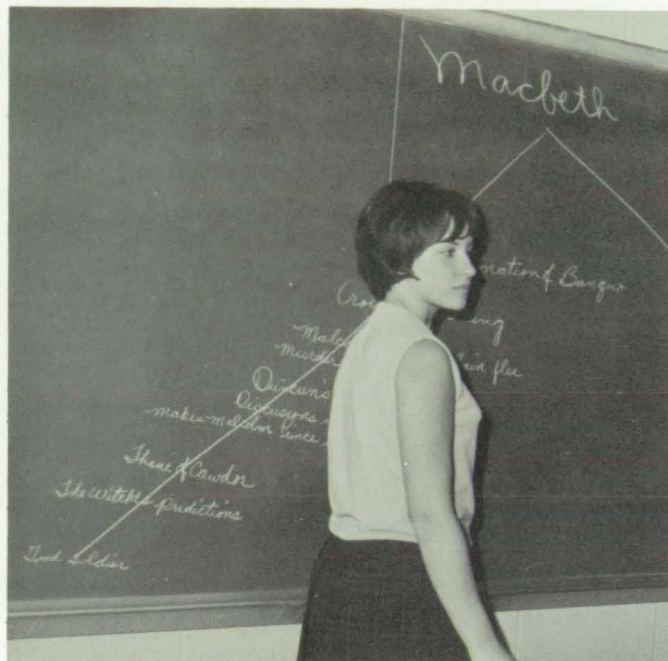 Macbeth
nation of Banquo
Cro ing
Malc ain flee
Murder
Duncan's
Discussions
makes Malcolm Prince
Thane of Cawdor
The Witches Predictions
Good Soldier